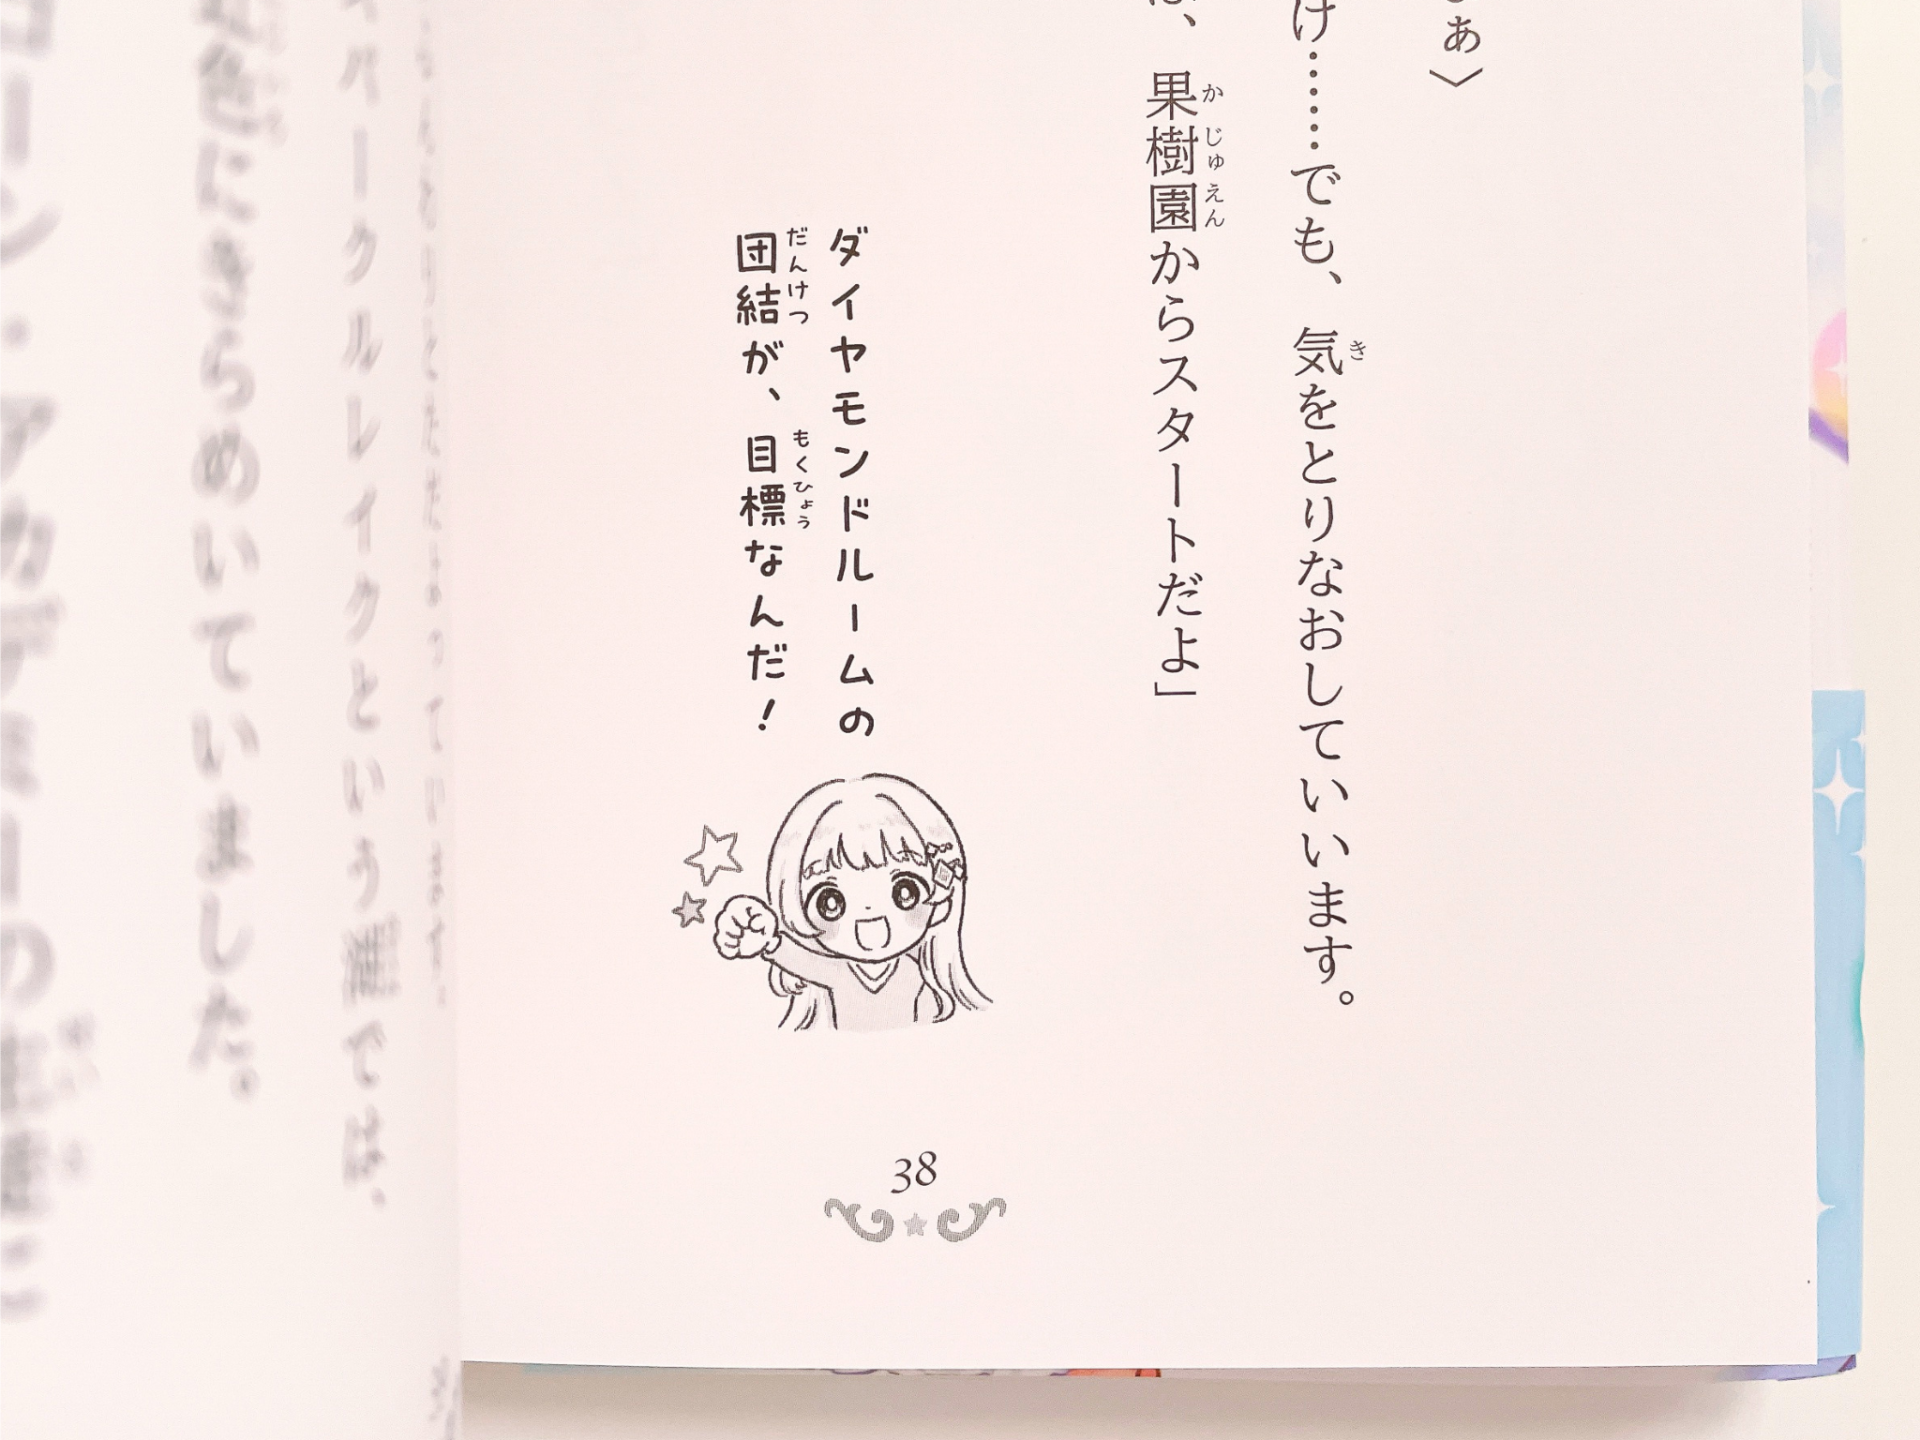 ぁ〉
け……でも、気をとりなおしていいます。
、果樹園からスタートだよ」
ダイヤモンドルームの
団結が、目標なんだ！
38
スパークルレイクという湖では、
色にきらめいていました。
コーン・アカデミーの